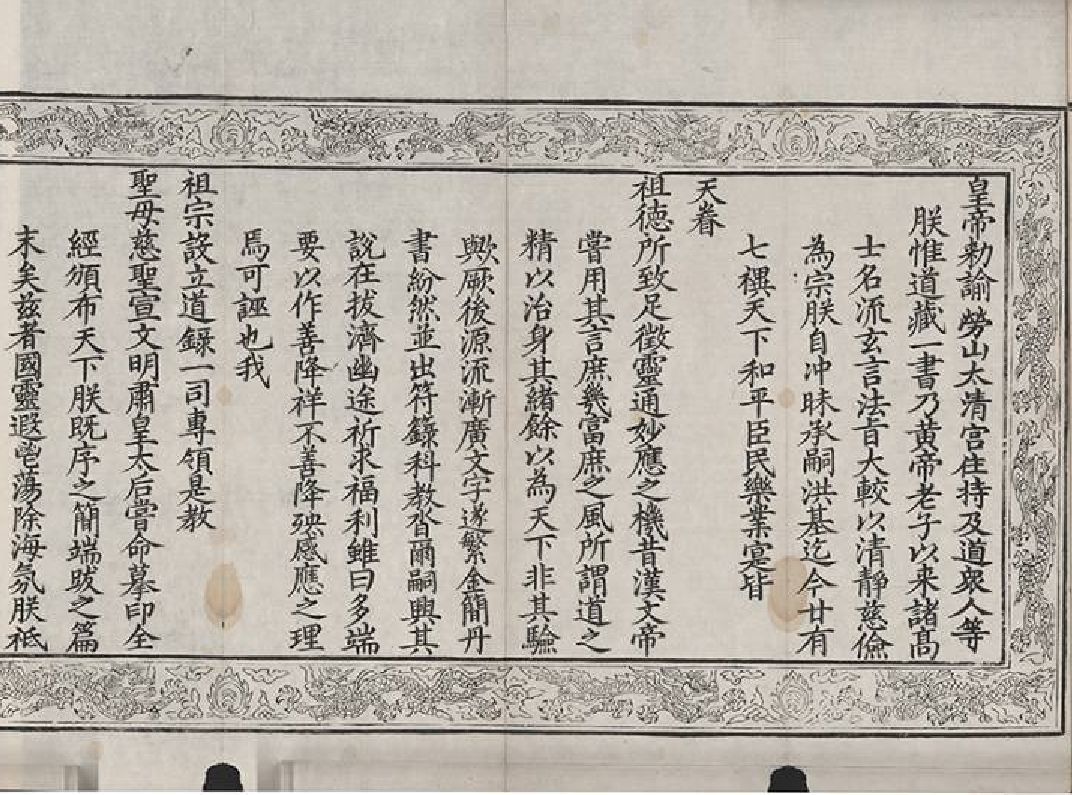 皇帝勑諭勞山太清宫住持及道衆人等
朕惟道藏一書乃黄帝老子以来諸髙
士名流玄言法旨大較以清靜慈儉
為宗朕自冲昧承嗣洪基迄今廿有
七禩天下和平臣民樂業寔皆
天眷
祖德所致足徵靈通妙應之機昔漢文帝
嘗用其言庶幾富庶之風所謂道之
精以治身其緒餘以為天下非其驗
歟厥後源流漸廣文字遂繁金簡丹
書紛然並出符籙科教沓爾嗣興其
說在拔濟幽途祈求福利雖曰多端
要以作善降祥不善降殃感應之理
焉可誣也我
祖宗設立道錄一司專領是教
聖母慈聖宣文明肅皇太后嘗命摹印全
經頒布天下朕既序之簡端跋之篇
末矣兹者國靈遐鬯蕩除海氛朕祗